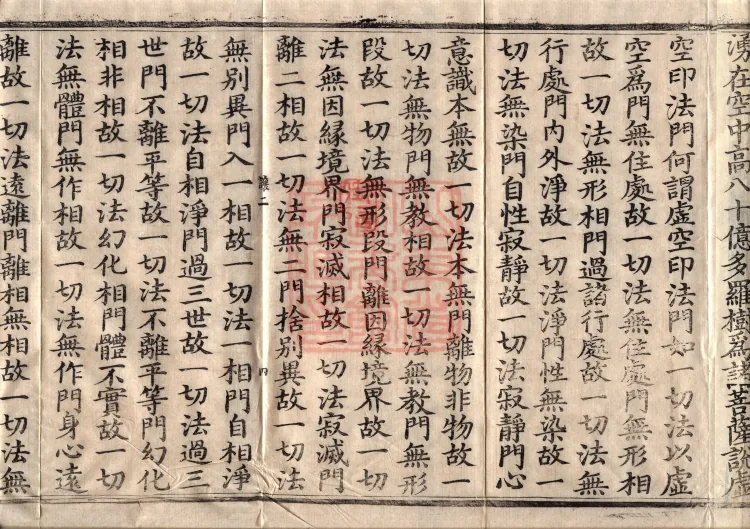 湧在空中高八十億多羅樹爲諸菩薩說虛
空印法門何謂虛空印法門如一切法以虛
空爲門無住處故一切法無住處門無形相
故一切法無形相門過諸行處故一切法無
行處門內外淨故一切法淨門性無染故一
切法無染門自性寂靜故一切法寂靜門心
意識本無故一切法本無門離物非物故一
切法無物門無教相故一切法無教門無形
段故一切法無形段門離因緣境界故一切
法無因緣境界門寂滅相故一切法寂滅門
離二相故一切法無二門捨別異故一切法
讓二
四
無別異門入一相故一切法一相門自相淨
故一切法自相淨門過三世故一切法過三
世門不離平等故一切法不離平等門幻化
相非相故一切法幻化相門體不實故一切
法無體門無作相故一切法無作門身心遠
離故一切法遠離門離相無相故一切法無